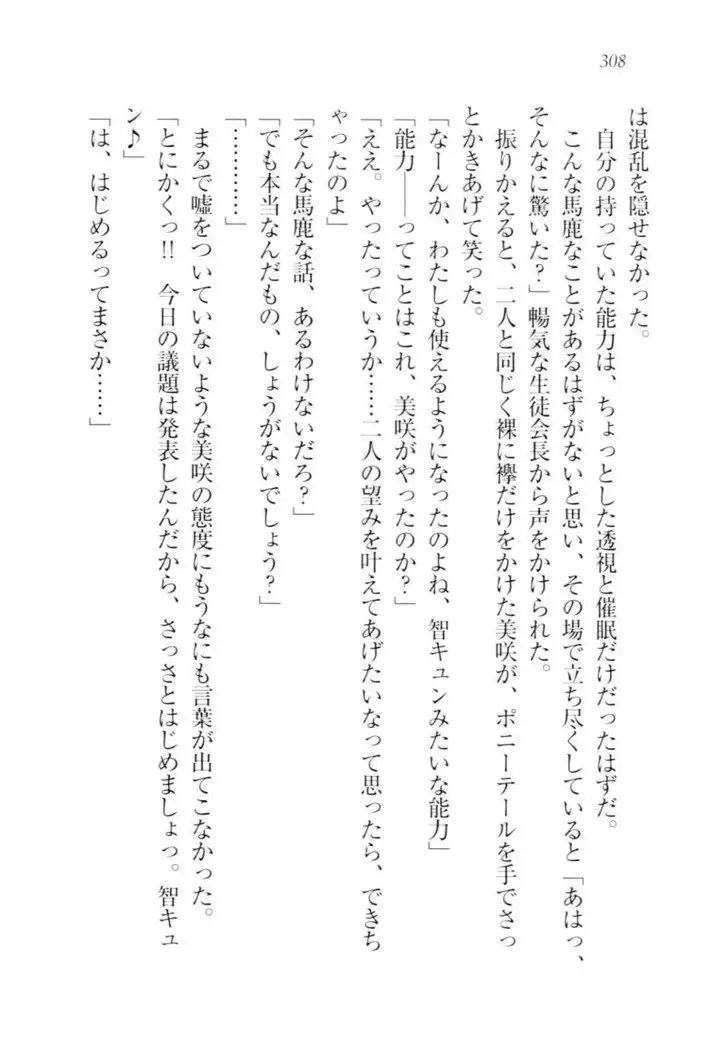 308
は混乱を隠せなかった。
自分の持っていた能力は、ちょっとした透視と催眠だけだったはずだ。
こんな馬鹿なことがあるはずがないと思い、その場で立ち尽くしていると「あはっ、
そんなに驚いた？」暢気な生徒会長から声をかけられた。
振りかえると、二人と同じく裸に襷だけをかけた美咲が、ポニーテールを手でさっ
とかきあげて笑った。
「なーんか、わたしも使えるようになったのよね、智キュンみたいな能力」
「能力――ってことはこれ、美咲がやったのか？」
「ええ。やったっていうか……二人の望みを叶えてあげたいなって思ったら、できち
ゃったのよ」
「そんな馬鹿な話、あるわけないだろ？」
「でも本当なんだもの、しょうがないでしょう？」
「…………」
まるで嘘をついていないような美咲の態度にもうなにも言葉が出てこなかった。
「とにかくっ!!　今日の議題は発表したんだから、さっさとはじめましょっ。智キュ
ン♪」
「は、はじめるってまさか……」